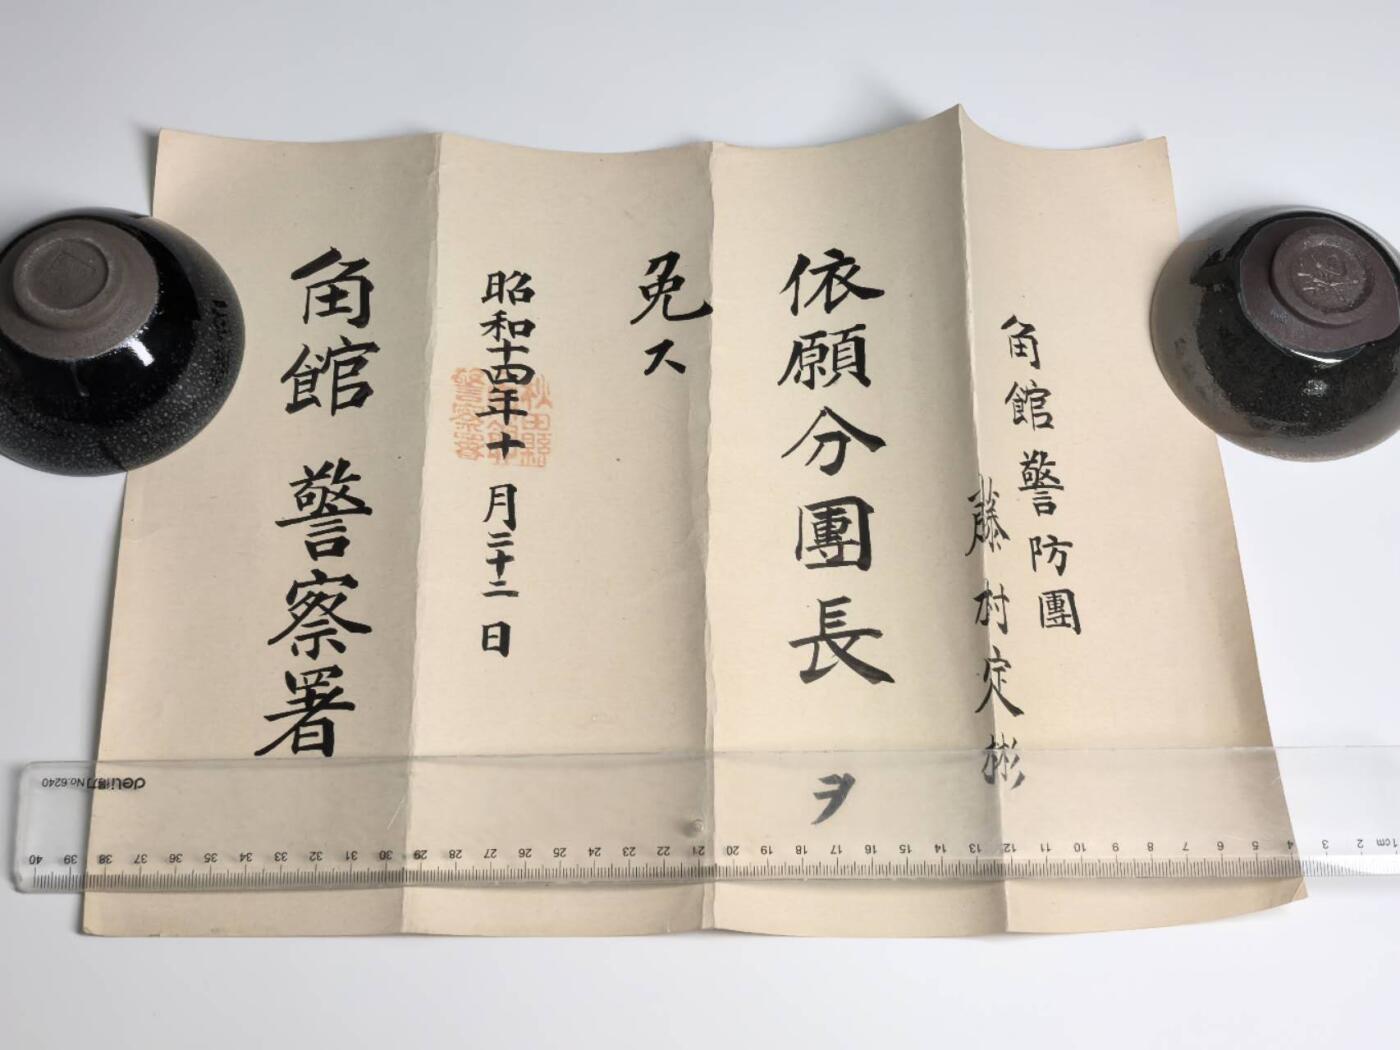 角館警防團
藤村定彬
依願分團長ヲ
免ス
昭和十四年十月二十二日
秋田縣
角館
警察署
角館警察署
deli得力No.6240
1cm 2 3 4 5 6 7 8 9 10 11 12 13 14 15 16 17 18 19 20 21 22 23 24 25 26 27 28 29 30 31 32 33 34 35 36 37 38 39 40